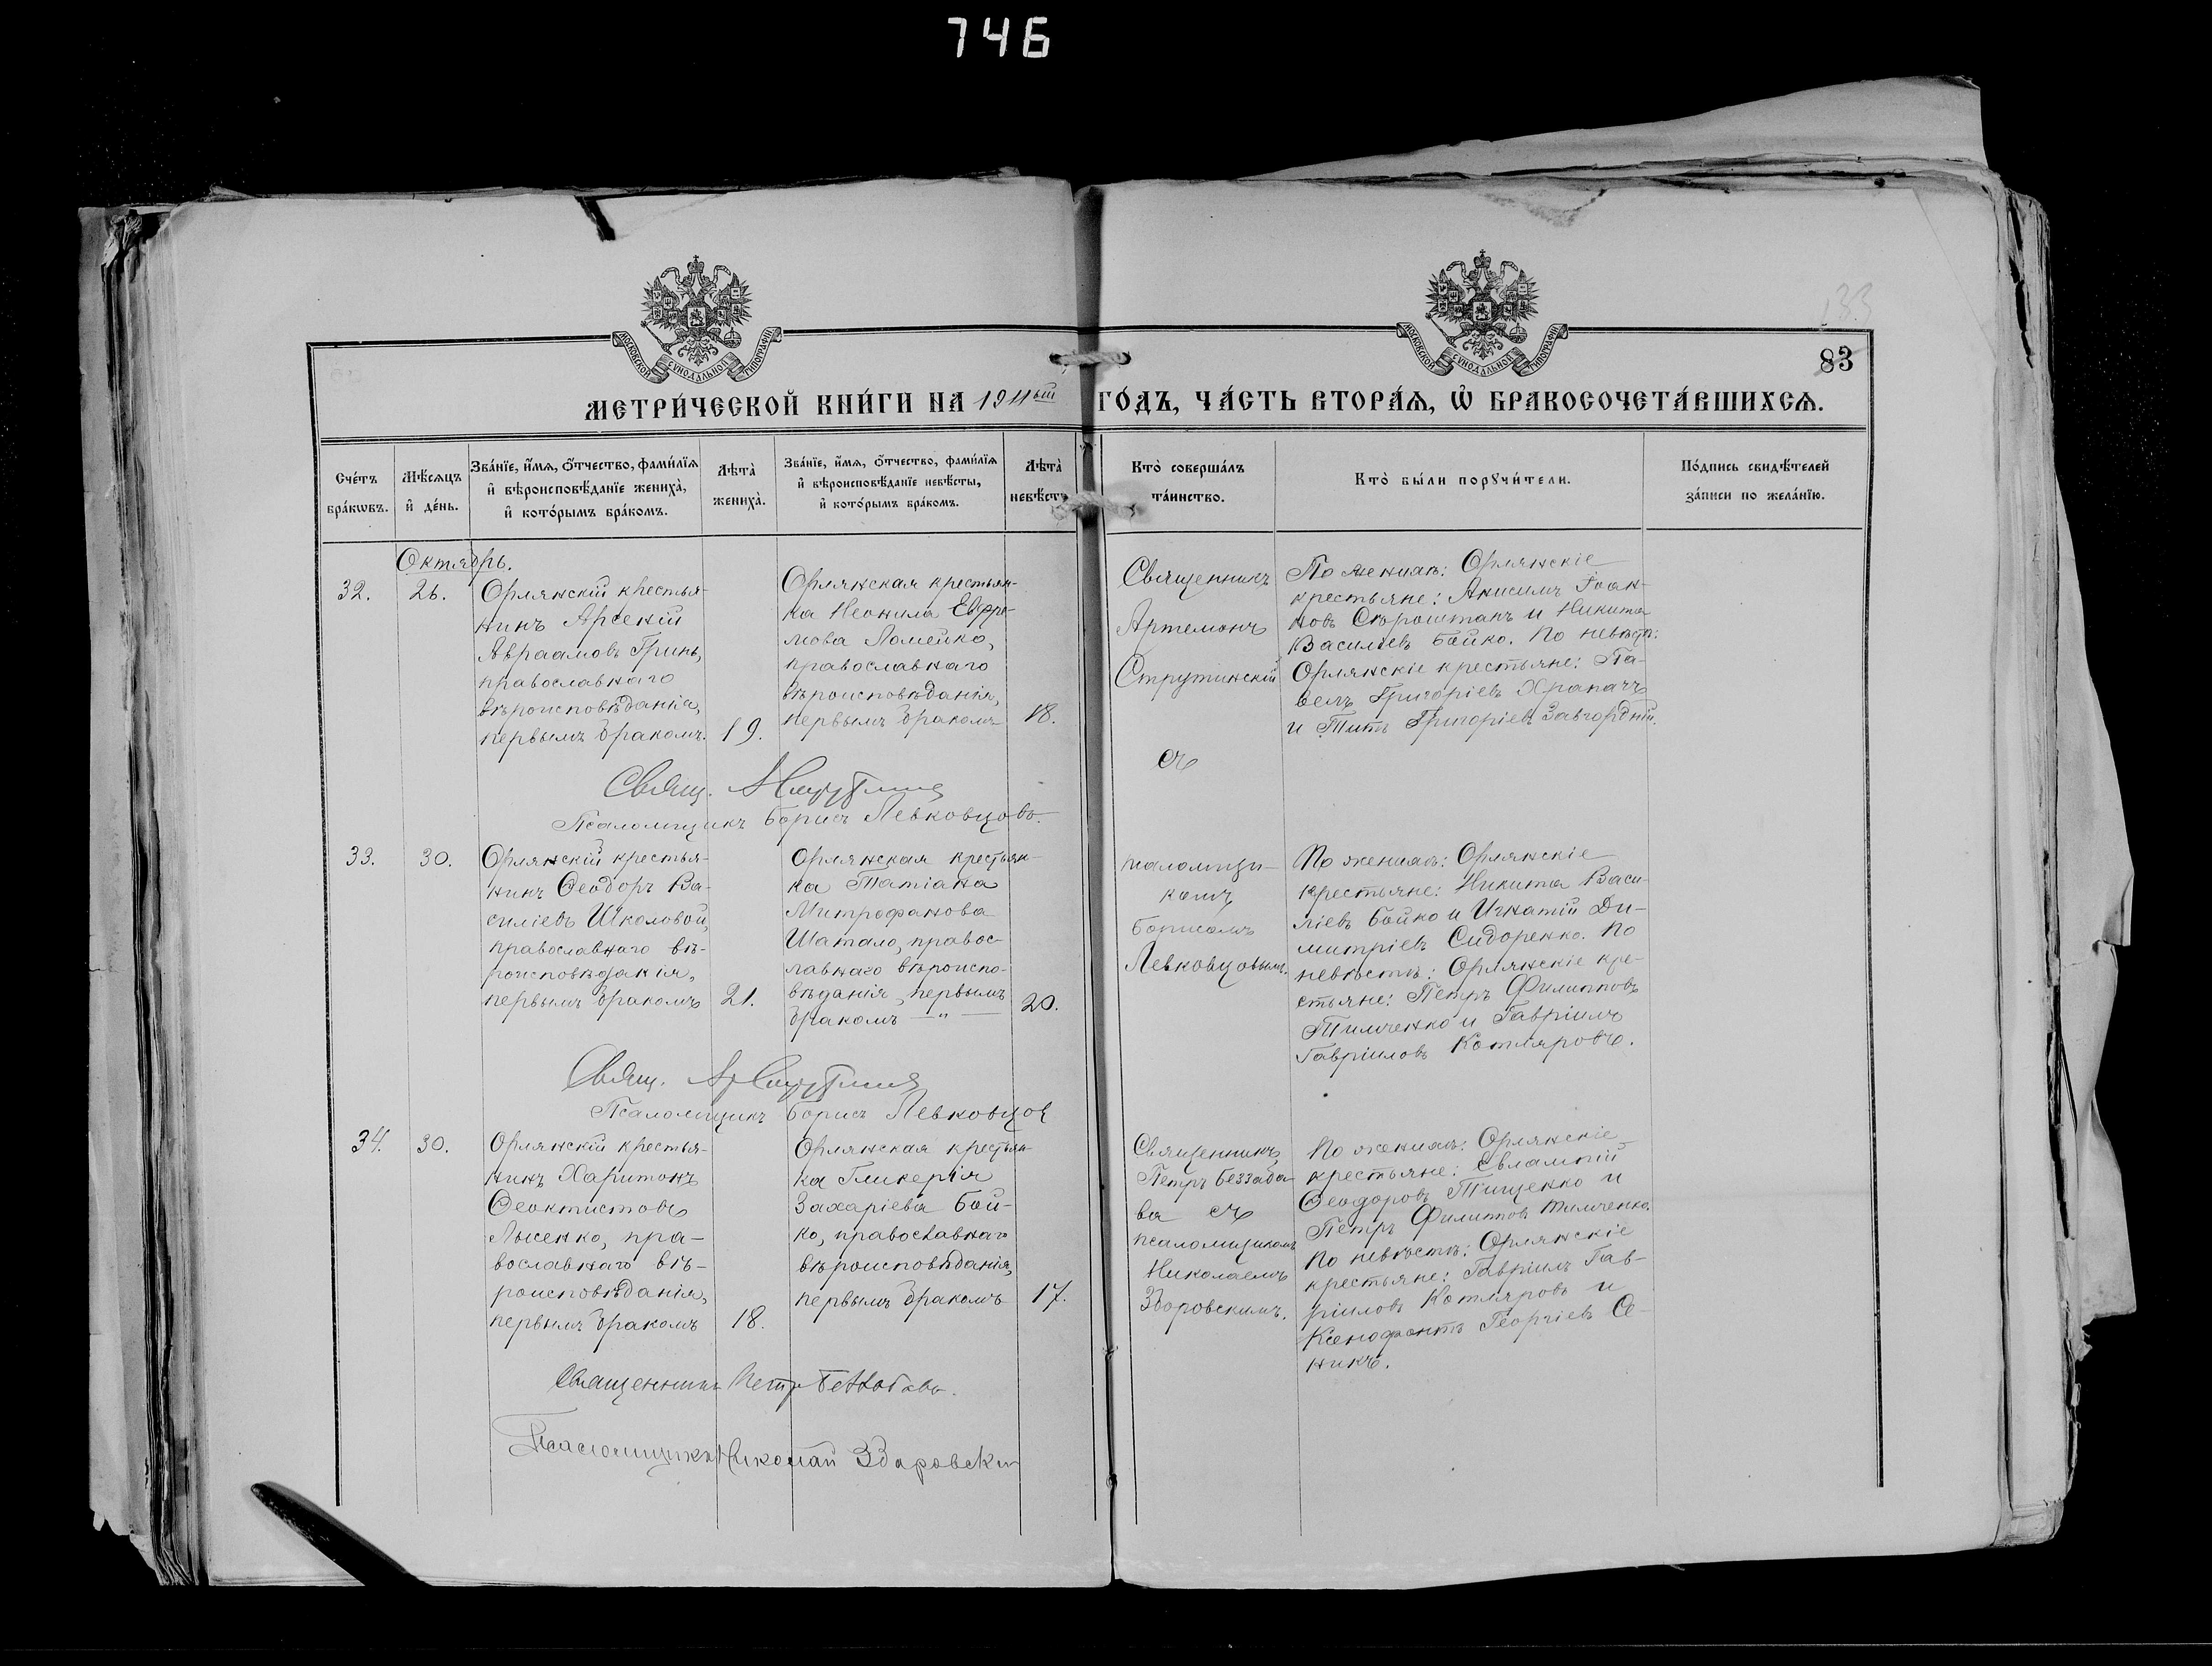 746
133
83
МОСКОВСКОЙ СѴНОДАЛЬНОЙ ТИПОГРАФІИ
МОСКОВСКОЙ СѴНОДАЛЬНОЙ ТИПОГРАФІИ
МЕТРИ́ЧЕСКОЙ КНИ́ГИ НА 1911ый ГО́ДЪ, ЧА́СТЬ ВТОРА́Ѧ, Ѡ҆ БРАКОСОЧЕТА́ВШИХСѦ.
Сче́тъ
бра́кωвъ.
Мѣ́сѧцъ
и҆ де́нь.
Зва́нїе, и҆́мѧ, ѻ҆́тчество, фами́лїѧ
и҆ вѣроисповѣ́данїе жениха̀,
и҆ кото́рымъ бра́комъ.
Лѣта̀
жениха̀.
Зва́нїе, и҆́мѧ, ѻ҆́тчество, фами́лїѧ
и҆ вѣроисповѣ́данїе невѣ́сты,
и҆ кото́рымъ бра́комъ.
Лѣта̀
невѣ́сты
Кто̀ соверша́лъ
та́инство.
Кто̀ бы́ли порꙋчи́тели.
По́дпись свидѣ́телей
за́писи по жела́нїю.
Октябрь.
32.
26.
Орлянскій крестья-
нинъ Арсеній
Авраамовъ Гринь,
православнаго
вѣроисповѣданія,
первымъ бракомъ.
19.
Орлянская крестьян-
ка Неонила Евфре-
мова Ломейко,
православнаго
вѣроисповѣданія,
первымъ бракомъ
18.
Священникъ
Артемонъ
Струтинскій
съ
По женихѣ: Орлянскіе
крестьяне: Анисимъ Іоан-
новъ Сѣроштанъ и Никита
Василіевъ Бойко. По невѣстѣ:
Орлянскіе крестьяне: Па-
велъ Григоріевъ Храпачъ
и Титъ Григоріевъ Завгордній.
Свящ. А Струтинск
Псаломщикъ Борисъ Левковцовъ.
33.
30.
Орлянскій крестья-
нинъ Ѳеодоръ Ва-
силіевъ Школовой,
православнаго вѣ-
роисповѣданія,
первымъ бракомъ
21.
Орлянская крестьян-
ка Татіана
Митрофанова
Шатало, правос-
лавнаго вѣроиспо-
вѣданія, первымъ
бракомъ — " —
20.
псаломщи-
комъ
Борисомъ
Левковцовымъ.
По женихѣ: Орлянскіе
крестьяне: Никита Васи-
ліевъ Бойко и Игнатій Ди-
митріевъ Сидоренко. По
невѣстѣ: Орлянскіе кре-
стьяне: Петръ Филипповъ
Тимченко и Гавріилъ
Гавріиловъ Котляровъ.
Свящ. Ар Струтинск
Псаломщикъ Борисъ Левковцов
34.
30.
Орлянскій крестья-
нинъ Харитонъ
Ѳеоктистовъ
Лысенко, пра-
вославнаго вѣ-
роисповѣданія,
первымъ бракомъ
18.
Орлянская крестьян-
ка Гликерія
Захаріева Бой-
ко, православнаго
вѣроисповѣданія,
первымъ бракомъ
17.
Священникъ
Петръ Беззаба-
ва съ
псаломщикомъ
Николаемъ
Здоровскимъ.
По женихѣ: Орлянскіе
крестьяне: Евлампій
Ѳеодоровъ Тищенко и
Петръ Филиппов Тимченко.
По невѣстѣ: Орлянскіе
крестьяне: Гавріилъ Гав-
ріиловъ Котляровъ и
Ксенофонтъ Георгіевъ Се-
никъ.
Священникъ Петр Беззабава.
Псаломщикъ Николай Здоровски